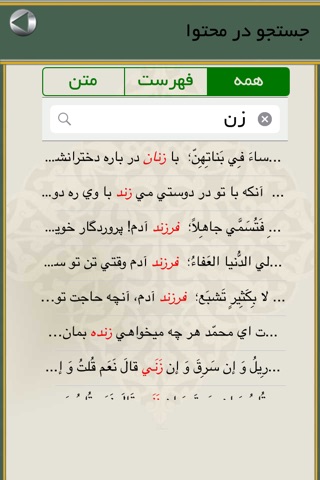 جستجو در محتوا
همه
فهرست
متن
زن
...ساءَ فِي بَناتِهِنَّ؛ با زنان در باره دخترانش...
... آنکه با تو در دوستي مي زند با وي ره دو...
...ِ فَتُسَمَّي جاهِلاً؛ فرزند آدم! پروردگار خوي...
...لي الدُّنيا العَفاءُ؛ فرزند آدم وقتي تن تو س...
... لا بِكَثِيرٍ تَشبَع؛ فرزند آدم، آنچه حاجت تو...
...ت اي محمّد هر چه میخواهي زنده بمان...
...رِيلُ وَ إن سَرِقَ وَ إن زَنَي قالَ نَعَم قُلتُ وَ إ...